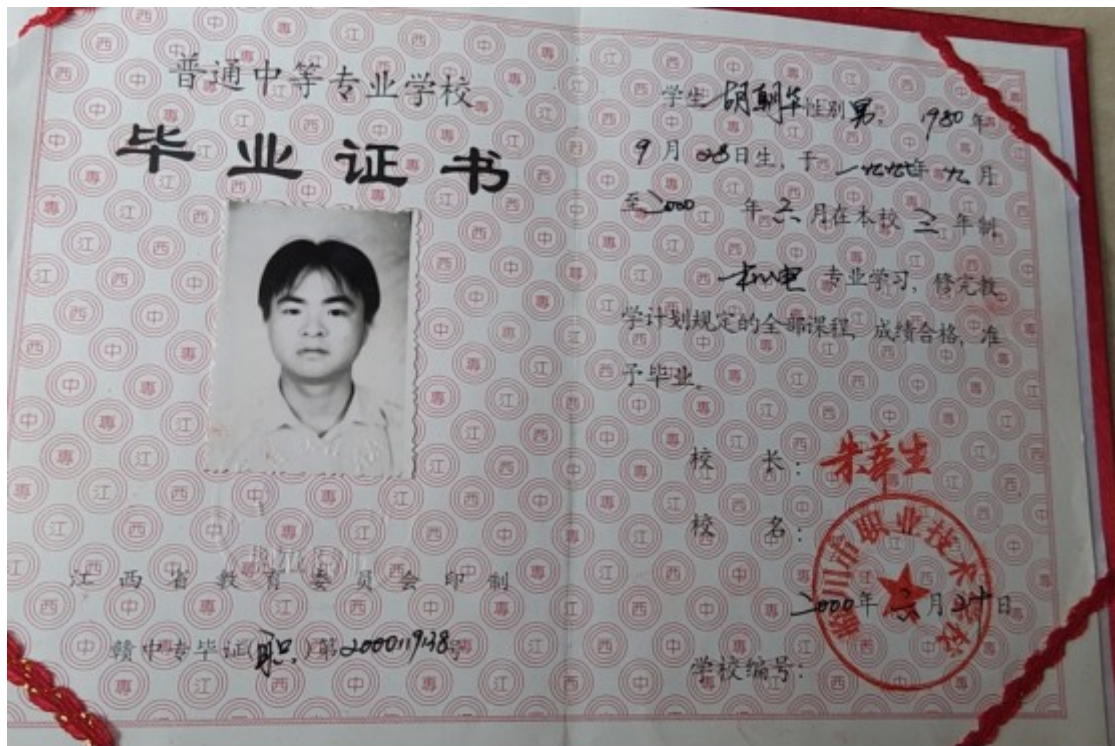 普通中等专业学校
毕业证书
江西省教育委员会印制
赣中专毕证(职)第2000119138号
学生胡朝华性别男。1980年
9月28日生,于一九九七年九月
至2000年六月在本校三年制
机电专业学习,修完教
学计划规定的全部课程,成绩合格,准
予毕业。
校长:朱华生
校名:
临川市职业技术学校
2000年六月20日
学校编号: